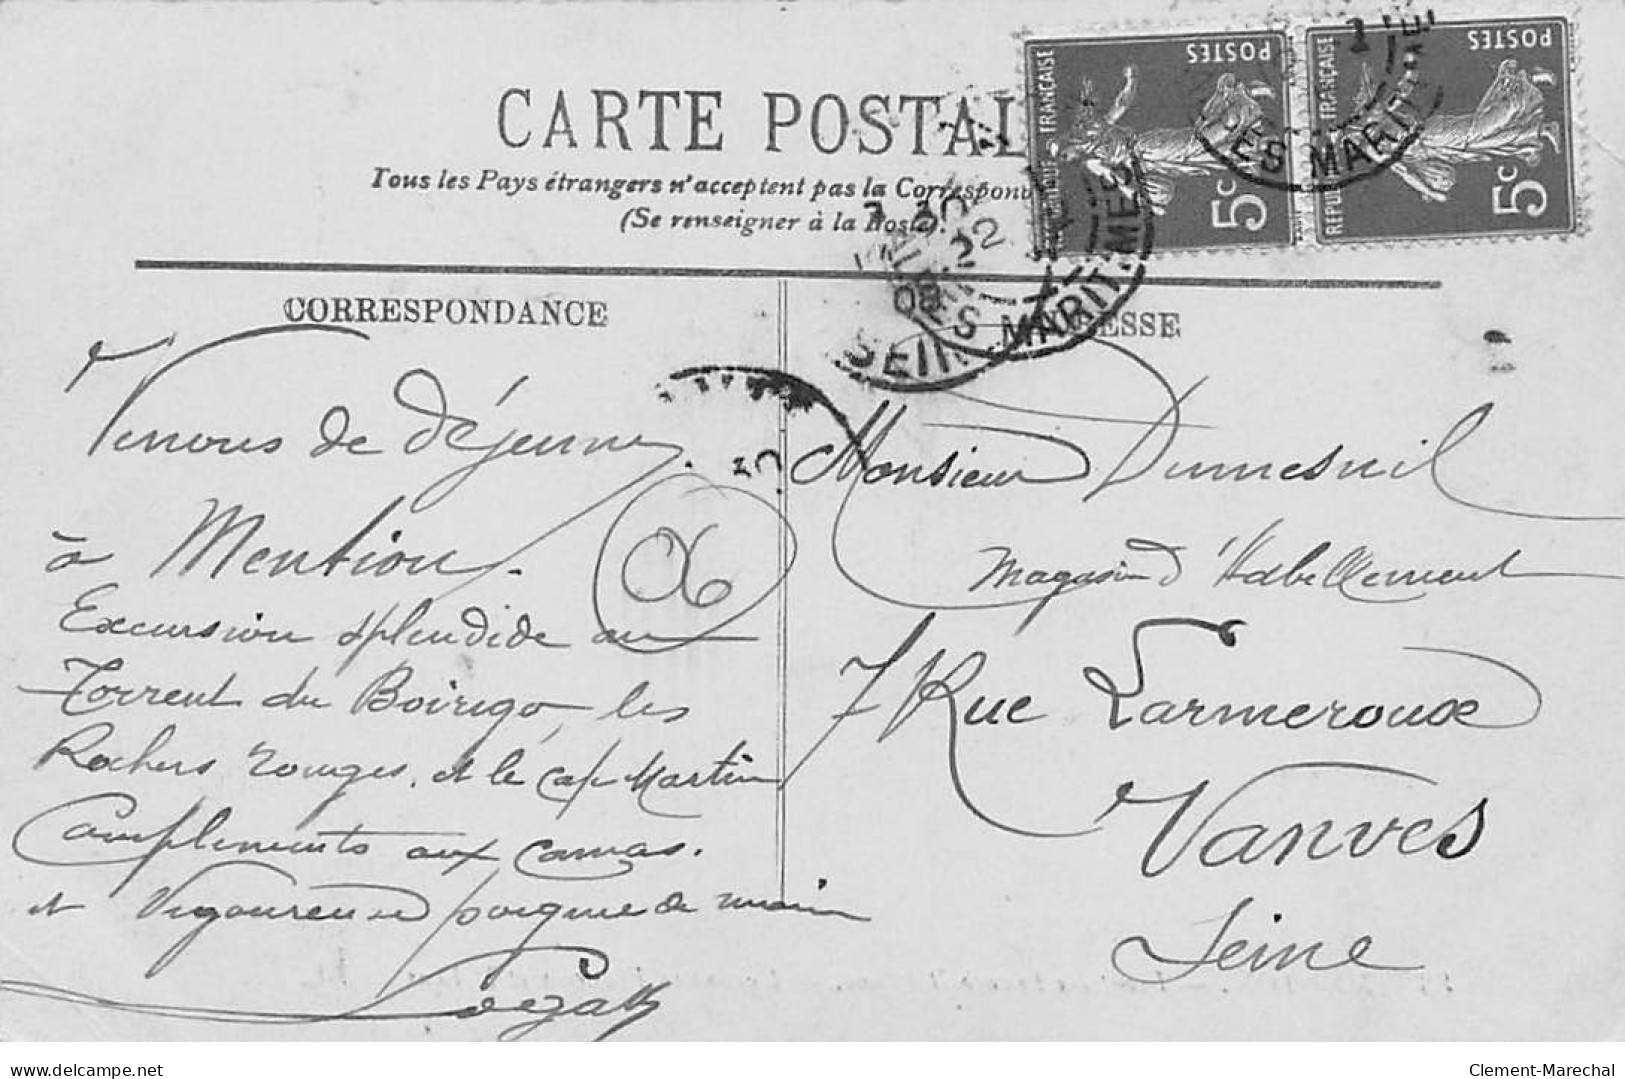 CARTE POSTAL
Tous les Pays étrangers n'acceptent pas la Correspon
(Se renseigner à la Poste).
RÉPUBLIQUE FRANÇAISE
POSTES
5c
RÉPUBLIQUE FRANÇAISE
POSTES
5c
ES MARITIME
7 30
22
2
08
ES MARITIMES
SEIN
CORRESPONDANCE
Venons de déjeuner
à Mention.
Excursion splendide au
Torrent du Boirigo, les
Rochers rouges, et le cap Martin
Compliments aux camas.
et Vigoureuse poignée de main
06
ADRESSE
Monsieur Dumesnil
Magasin d'Habillement
7 Rue Larmeroux
Vanves
Seine
delcampe.net
Clement-Marechal